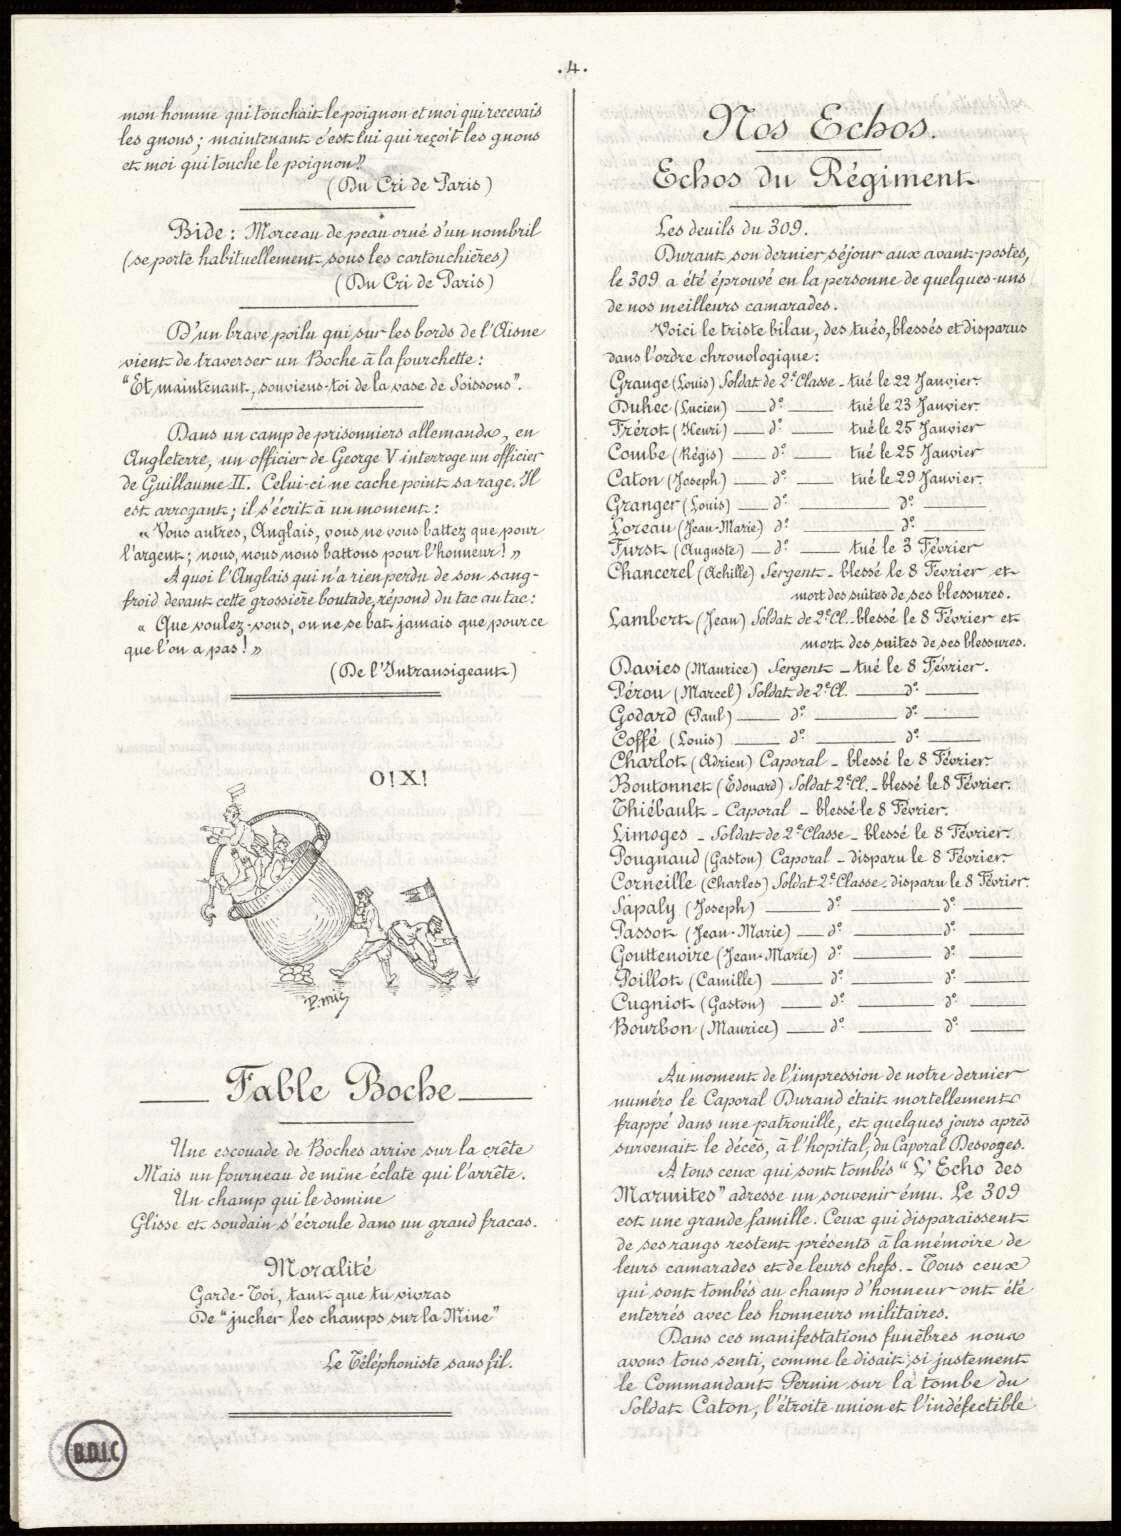 . 4 .
mon homme qui touchait le poignon et moi qui recevais
les gnons ; maintenant c'est lui qui reçoit les gnons
et moi qui touche le poignon"
(Du Cri de Paris)
Bide : Morceau de peau orné d'un nombril
(se porte habituellement sous les cartouchières)
(Du Cri de Paris)
D'un brave poilu qui sur les bords de l'Aisne
vient de traverser un Boche à la fourchette :
"Et maintenant, souviens-toi de la vase de Soissons".
Dans un camp de prisonniers allemands, en
Angleterre, un officier de George V interroge un officier
de Guillaume II. Celui-ci ne cache point sa rage. Il
est arrogant ; il s'écrit à un moment :
« Vous autres, Anglais, vous ne vous battez que pour
l'argent ; nous, nous nous battons pour l'honneur ! »
A quoi l'Anglais qui n'a rien perdu de son sang-
froid devant cette grossière boutade, répond du tac au tac :
« Que voulez-vous, on ne se bat jamais que pour ce
que l'on a pas ! »
(De l'Intransigeant)
O! X!
P. mic
Fable Boche
Une escouade de Boches arrive sur la crête
Mais un fourneau de mine éclate qui l'arrête.
Un champ qui le domine
Glisse et soudain s'écroule dans un grand fracas.
Moralité
Garde-Toi, tant que tu vivras
De "jucher les champs sur la Mine"
Le Téléphoniste sans fil.
B.D.I.C
Nos Echos.
Echos du Régiment
Les deuils du 309.
Durant son dernier séjour aux avant-postes,
le 309 a été éprouvé en la personne de quelques-uns
de nos meilleurs camarades.
Voici le triste bilan, des tués, blessés et disparus
dans l'ordre chronologique :
Grange (Louis) Soldat de 2e Classe - tué le 22 Janvier.
Duhec (Lucien) — d° — tué le 23 Janvier.
Frérot (Henri) — d° — tué le 25 Janvier
Combe (Régis) — d° — tué le 25 Janvier
Caton (Joseph) — d° — tué le 29 Janvier.
Granger (Louis) — d° — d° —
Loreau (Jean-Marie) d° — d° —
Furst (Auguste) — d° — tué le 3 Février
Chancerel (Achille) Sergent - blessé le 8 Février et
mort des suites de ses blessures.
Lambert (Jean) Soldat de 2e Cl. - blessé le 8 Février et
mort des suites de ses blessures.
Davies (Maurice) Sergent - tué le 8 Février.
Pérou (Marcel) Soldat de 2e Cl. — d° —
Godard (Paul) — d° — d° —
Coffé (Louis) — d° — d° —
Charlot (Adrien) Caporal - blessé le 8 Février.
Boutonnet (Édouard) Soldat 2e Cl. - blessé le 8 Février.
Thiébault - Caporal - blessé le 8 Février.
Limoges - Soldat de 2e Classe - blessé le 8 Février.
Pougnaud (Gaston) Caporal - disparu le 8 Février.
Corneille (Charles) Soldat 2e Classe - disparu le 8 Février.
Sapaly (Joseph) — d° — d° —
Passot (Jean-Marie) — d° — d° —
Gouttenoire (Jean-Marie) d° — d° —
Poillot (Camille) — d° — d° —
Cugniot (Gaston) — d° — d° —
Bourbon (Maurice) — d° — d° —
Au moment de l'impression de notre dernier
numéro le Caporal Durand était mortellement
frappé dans une patrouille, et quelques jours après
survenait le décès, à l'hopital, du Caporal Desvoges.
A tous ceux qui sont tombés "L'Echo des
Marmites" adresse un souvenir ému. Le 309
est une grande famille. Ceux qui disparaissent
de ses rangs restent présents à la mémoire de
leurs camarades et de leurs chefs. - Tous ceux
qui sont tombés au champ d'honneur ont été
enterrés avec les honneurs militaires.
Dans ces manifestations funèbres nous
avons tous senti, comme le disait si justement
le Commandant Pernin sur la tombe du
Soldat Caton, l'étroite union et l'indéfectible